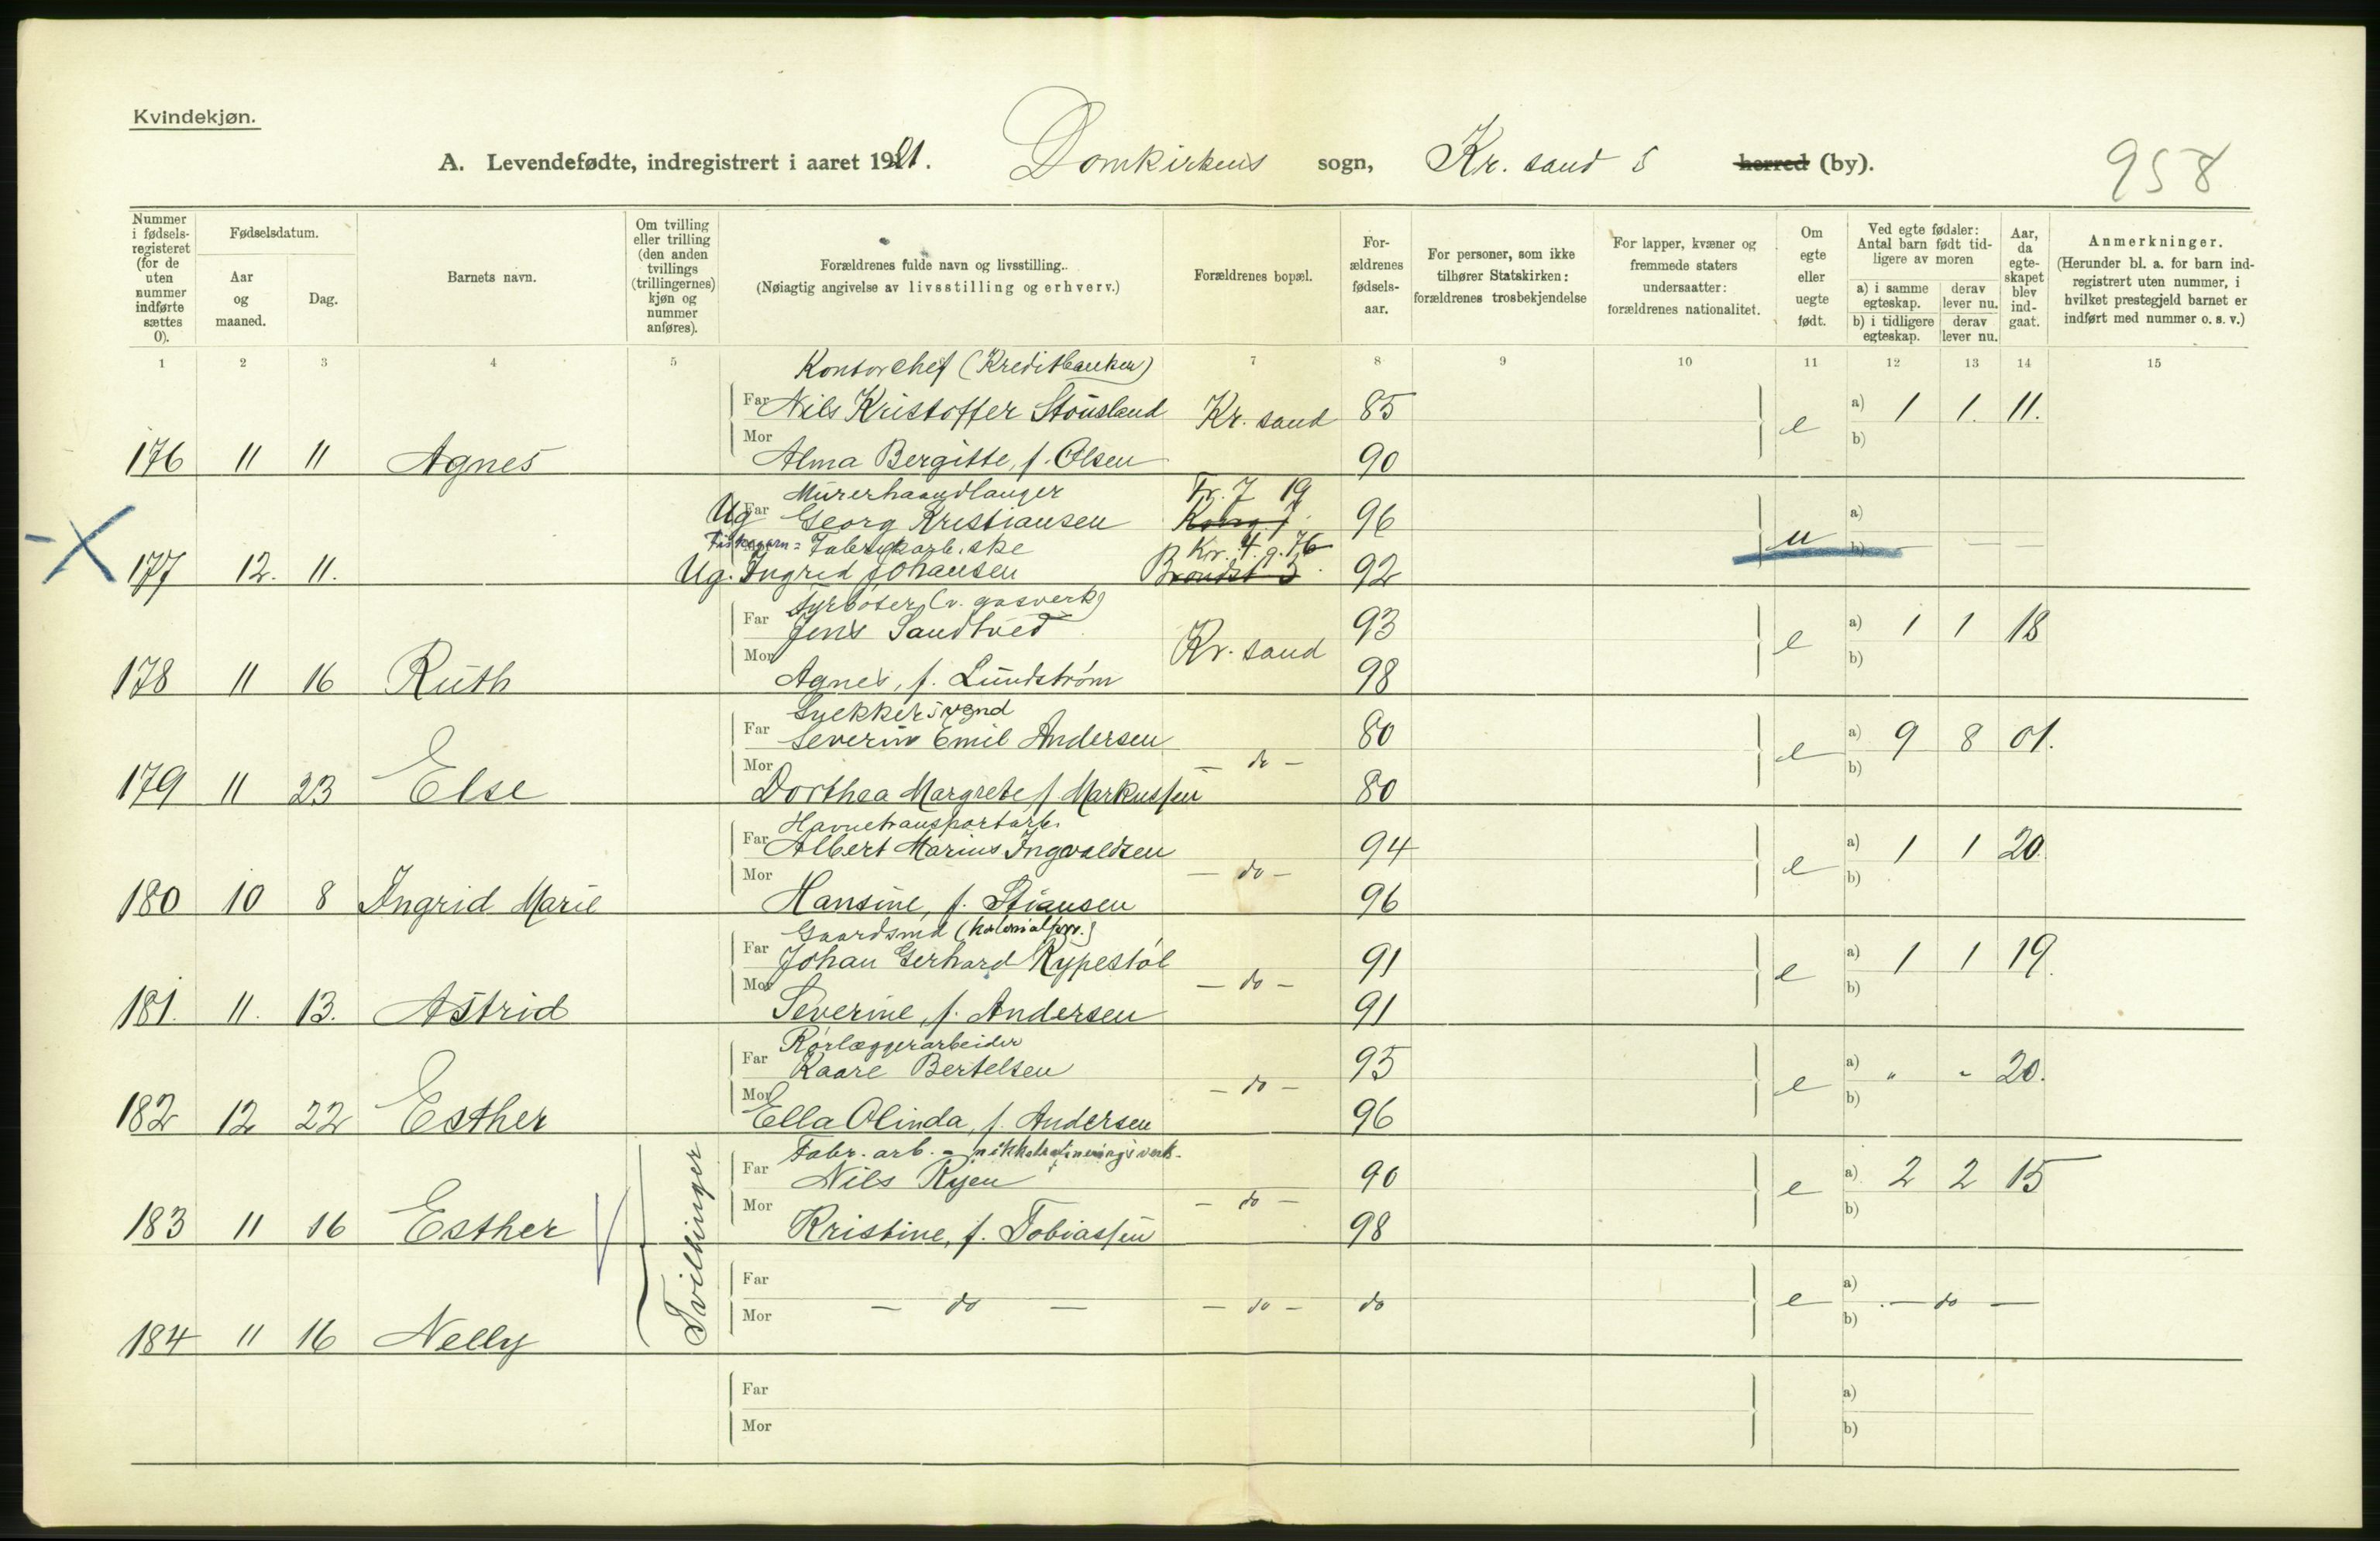 Kvindekjøn.
A. Levendefødte, indregistrert i aaret 1921. Domkirkens sogn, Kr. sand S herred (by). 958
Nummer i fødselsregisteret (for de uten nummer indførte sættes 0).
Fødselsdatum.
Aar og maaned.
Dag.
Barnets navn.
Om tvilling eller trilling (den anden tvillings (trillingernes) kjøn og nummer anføres).
Forældrenes fulde navn og livsstilling.
(Nøiagtig angivelse av livsstilling og erhverv.)
Forældrenes bopæl.
Forældrenes fødselsaar.
For personer, som ikke tilhører Statskirken: forældrenes trosbekjendelse
For lapper, kvæner og fremmede staters undersaatter: forældrenes nationalitet.
Om egte eller uegte født.
Ved egte fødsler: Antal barn født tidligere av moren
a) i samme egteskap. derav lever nu.
b) i tidligere egteskap. derav lever nu.
Aar, da egteskapet blev indgaat.
Anmerkninger.
(Herunder bl. a. for barn indregistrert uten nummer, i hvilket prestegjeld barnet er indført med nummer o. s. v.)
1 2 3 4 5 7 8 9 10 11 12 13 14 15
Kontorchef (Kreditbanken)
Far Nils Kristoffer Stousland Kr. sand 85 e a) 1 1. 11.
Mor b)
176 11 11 Agnes Alma Bergitte, f. Olsen 90
Murerhaandlanger Tr. 7 19
Ug Far Georg Kristiansen 96 u a)
Fabrikarb.ske Kr. 4. g. 76 b)
177 12. 11. Ug. Ingrid Johansen 92
Fyrbøter (v. gasverk)
Far Jens Sandtved Kr. sand 93 e a) 1 1 18
Mor b)
178 11 16 Ruth Agnes, f. Lundstrøm 98
Snekkersvend
Far Severin Emil Andersen - do - 80 e a) 9 8 01.
Mor b)
179 11 23 Else Dorthea Margrete f Markussen 80
Havnetransportarb.
Far Albert Marius Ingvaldsen - do - 94 e a) 1 1 20.
Mor b)
180 10 8 Ingrid Marie Hansine, f. Stiansen 96
Gaardsmd (Kolonialforr.)
Far Johan Gerhard Rypestøl - do - 91 e a) 1 1 19.
Mor b)
181. 11. 13. Astrid Severine, f. Andersen 91
Rørlæggerarbeider
Far Kaare Bertelsen - do - 95 e a) " - 20.
Mor b)
182 12 22 Esther Ella Olinda, f. Andersen 96
Fabr. arb. - nikkelrafineringsverk.
Far Nils Ryen - do - 90 e a) 2 2 15
Mor b)
183 11 16 Esther Tvillinger Kristine, f. Tobiassen 98
Far e a)
Mor - do - - do - do - do - b)
184 11 16 Nelly
Far a)
Mor b)